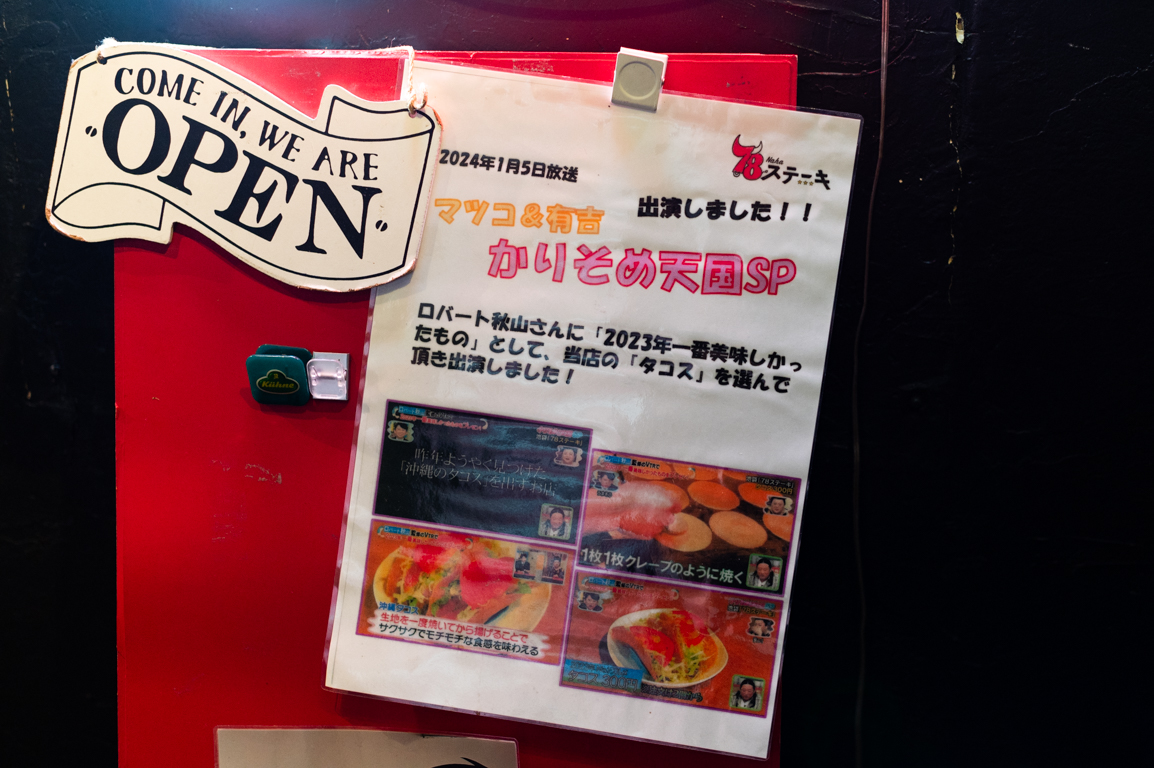 COME IN, WE ARE
OPEN
2024年1月5日放送
78
Naha
ステーキ
マツコ&有吉
出演しました!!
かりそめ天国SP
ロバート秋山さんに「2023年一番美味しかっ
たもの」として、当店の「タコス」を選んで
頂き出演しました!
Kühne
昨年ようやく見つけた
「沖縄のタコス」を出すお店
1枚1枚クレープのように焼く
沖縄タコス
生地を一度焼いてから揚げることで
サクサクでモチモチな食感を味わえる